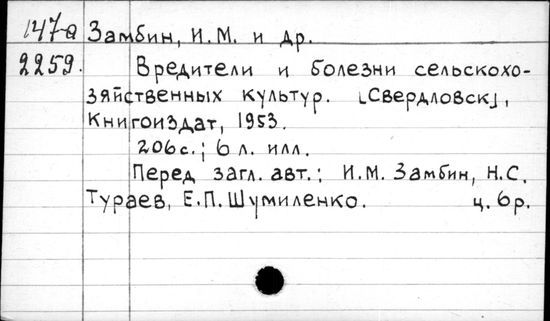 147а Замбин, И.М. и др.
2259. Вредители и болезни сельскохо-
зяйственных культур. [Свердловск],
Книгоиздат, 1953.
206с.; 6 л. илл.
Перед загл. авт.: И.М. Замбин, Н.С.
Тураев, Е.П. Шумиленко. ц. 6р.